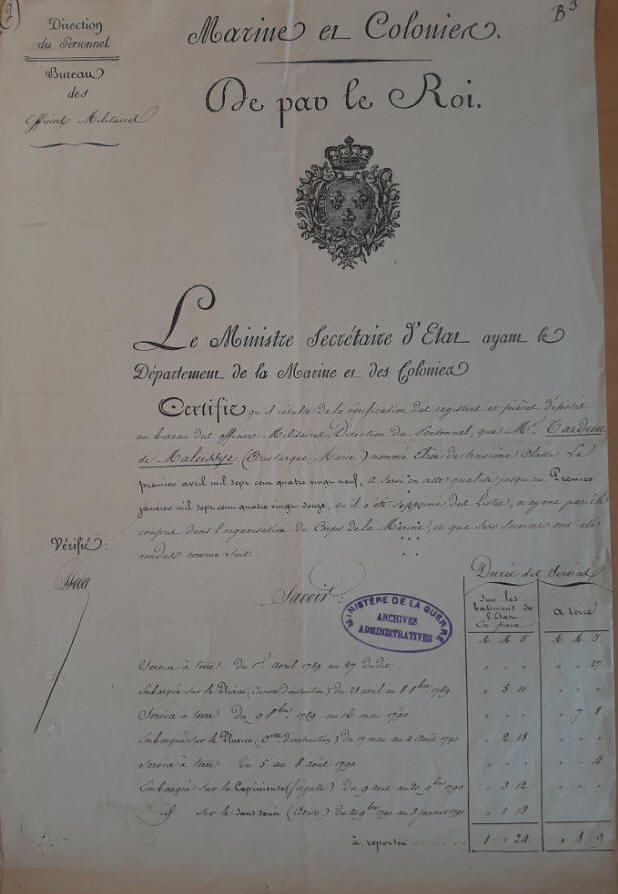 B 3
Direction
du Personnel
Bureau
des
Officiers Militaires
Marine et Colonies.
De par le Roi.
Le Ministre Secrétaire d'Etat ayant le
Département de la Marine et des Colonies
Certifie qu'il résulte de la vérification des registres et pièces déposés
au bureau des officiers Militaires, Direction du Personnel, que Mr. Tardieu
de Maleissye (Marie) nommé Elève de troisième classe Le
premier avril mil sept cent quatre vingt neuf, a servi en cette qualité jusqu'au Premier
janvier mil sept cent quatre vingt douze, qu'il a été supprimé des Listes, n'ayant pas été
compris dans l'organisation du Corps de la Marine, et que ses services ont été
rendus comme suit:
Vérifié:
Savoir:
MINISTÈRE DE LA GUERRE
ARCHIVES
ADMINISTRATIVES
Durée des Services
sur les
bâtiments de
l'Etat
En paix
à terre
A M J A M J
Service à terre du 1er avril 1789 au 27 dudit " " " " " 27
Embarqué sur le (Corvette d'instruction) du 28 avril au 8 8bre 1789. " 5 11 " " "
Service à terre du 9 8bre 1789 au 16 mai 1790 " " " " 7 8
Embarqué sur le (Corvette d'instruction) du 17 mai au 4 août 1790 " 2 18 " " "
Service à terre du 5 au 8 août 1790 " " " " " 4
Embarqué sur la Capricieuse (frégate) du 9 août au 20 9bre 1790 " 3 12 " " "
id sur le Sans souci (Aviso) du 21 9bre 1790 au 3 janvier 1791 " 1 13 " " "
à reporter 1 " 24 " 8 9